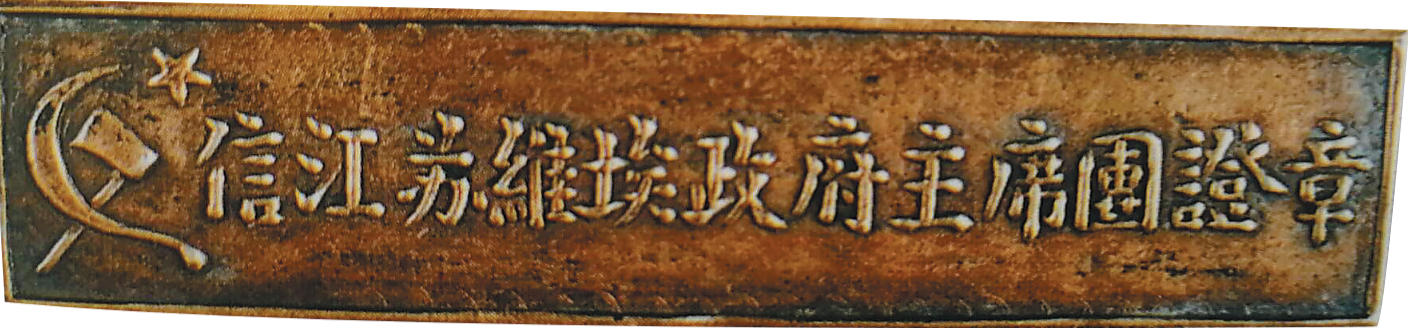 信江苏維埃政府主席團證章